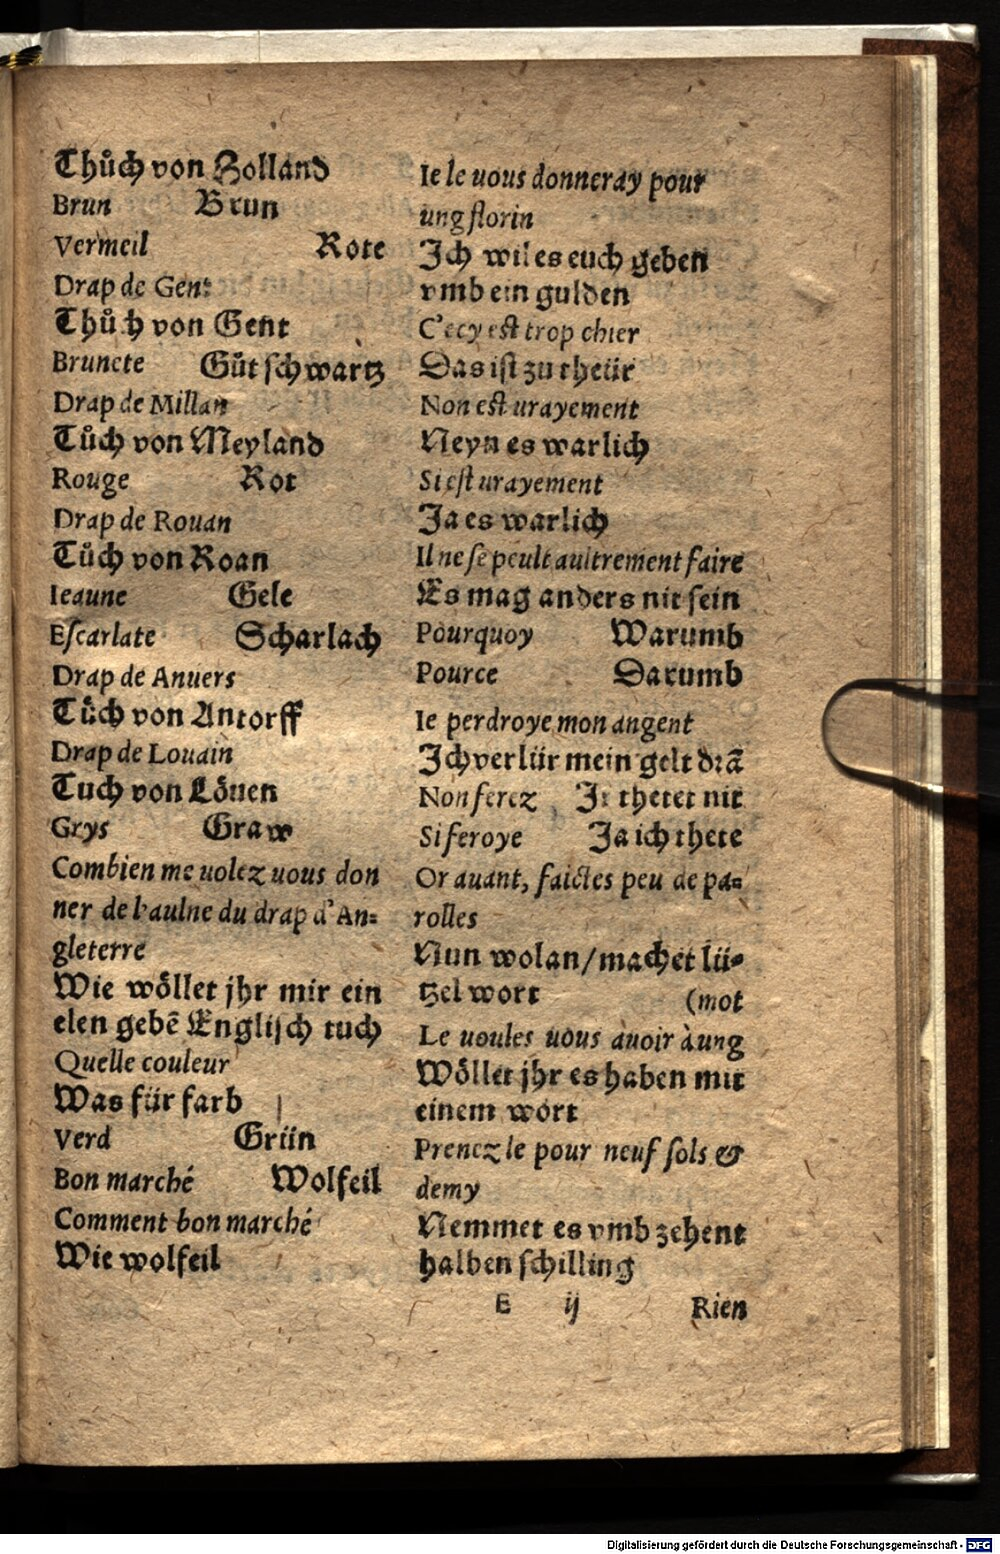 Thůch von Holland
Brun Brun
Vermeil Rote
Drap de Gent
Thůch von Gent
Brunete Gůt schwartz
Drap de Millan
Tůch von Meyland
Rouge Rot
Drap de Rouan
Tůch von Roan
Ieaune Gele
Eſcarlate Scharlach
Drap de Anuers
Tůch von Antorff
Drap de Louain
Tuch von Löuen
Grys Graw
Combien me uolez uous don
ner de l'aulne du drap d'An=
gleterre
Wie wöllet jhr mir ein
elen gebẽ Engliſch tuch
Quelle couleur
Was für farb
Verd Grün
Bon marché Wolfeil
Comment bon marché
Wie wolfeil
Ie le uous donneray pour
ung florin
Ich wil es euch geben
vmb ein gulden
C'ecy eſt trop chier
Das iſt zu theür
Non eſt urayement
Neyn es warlich
Si eſt urayement
Ja es warlich
Il ne ſe peult aultrement faire
Es mag anders nit ſein
Pourquoy Warumb
Pource Darumb
Ie perdroye mon angent
Ich verlür mein gelt drã
Non ferez Ir thetet nit
Si feroye Ja ich thete
Or auant, faictes peu de pa=
rolles
Nun wolan/machet lü=
tzel wort (mot
Le uoules uous auoir à ung
Wöllet jhr es haben mit
einem wort
Prenez le pour neuf ſols &
demy
Nemmet es vmb zehent
halben ſchilling
E ij Rien
Digitalisierung gefördert durch die Deutsche Forschungsgemeinschaft - DFG